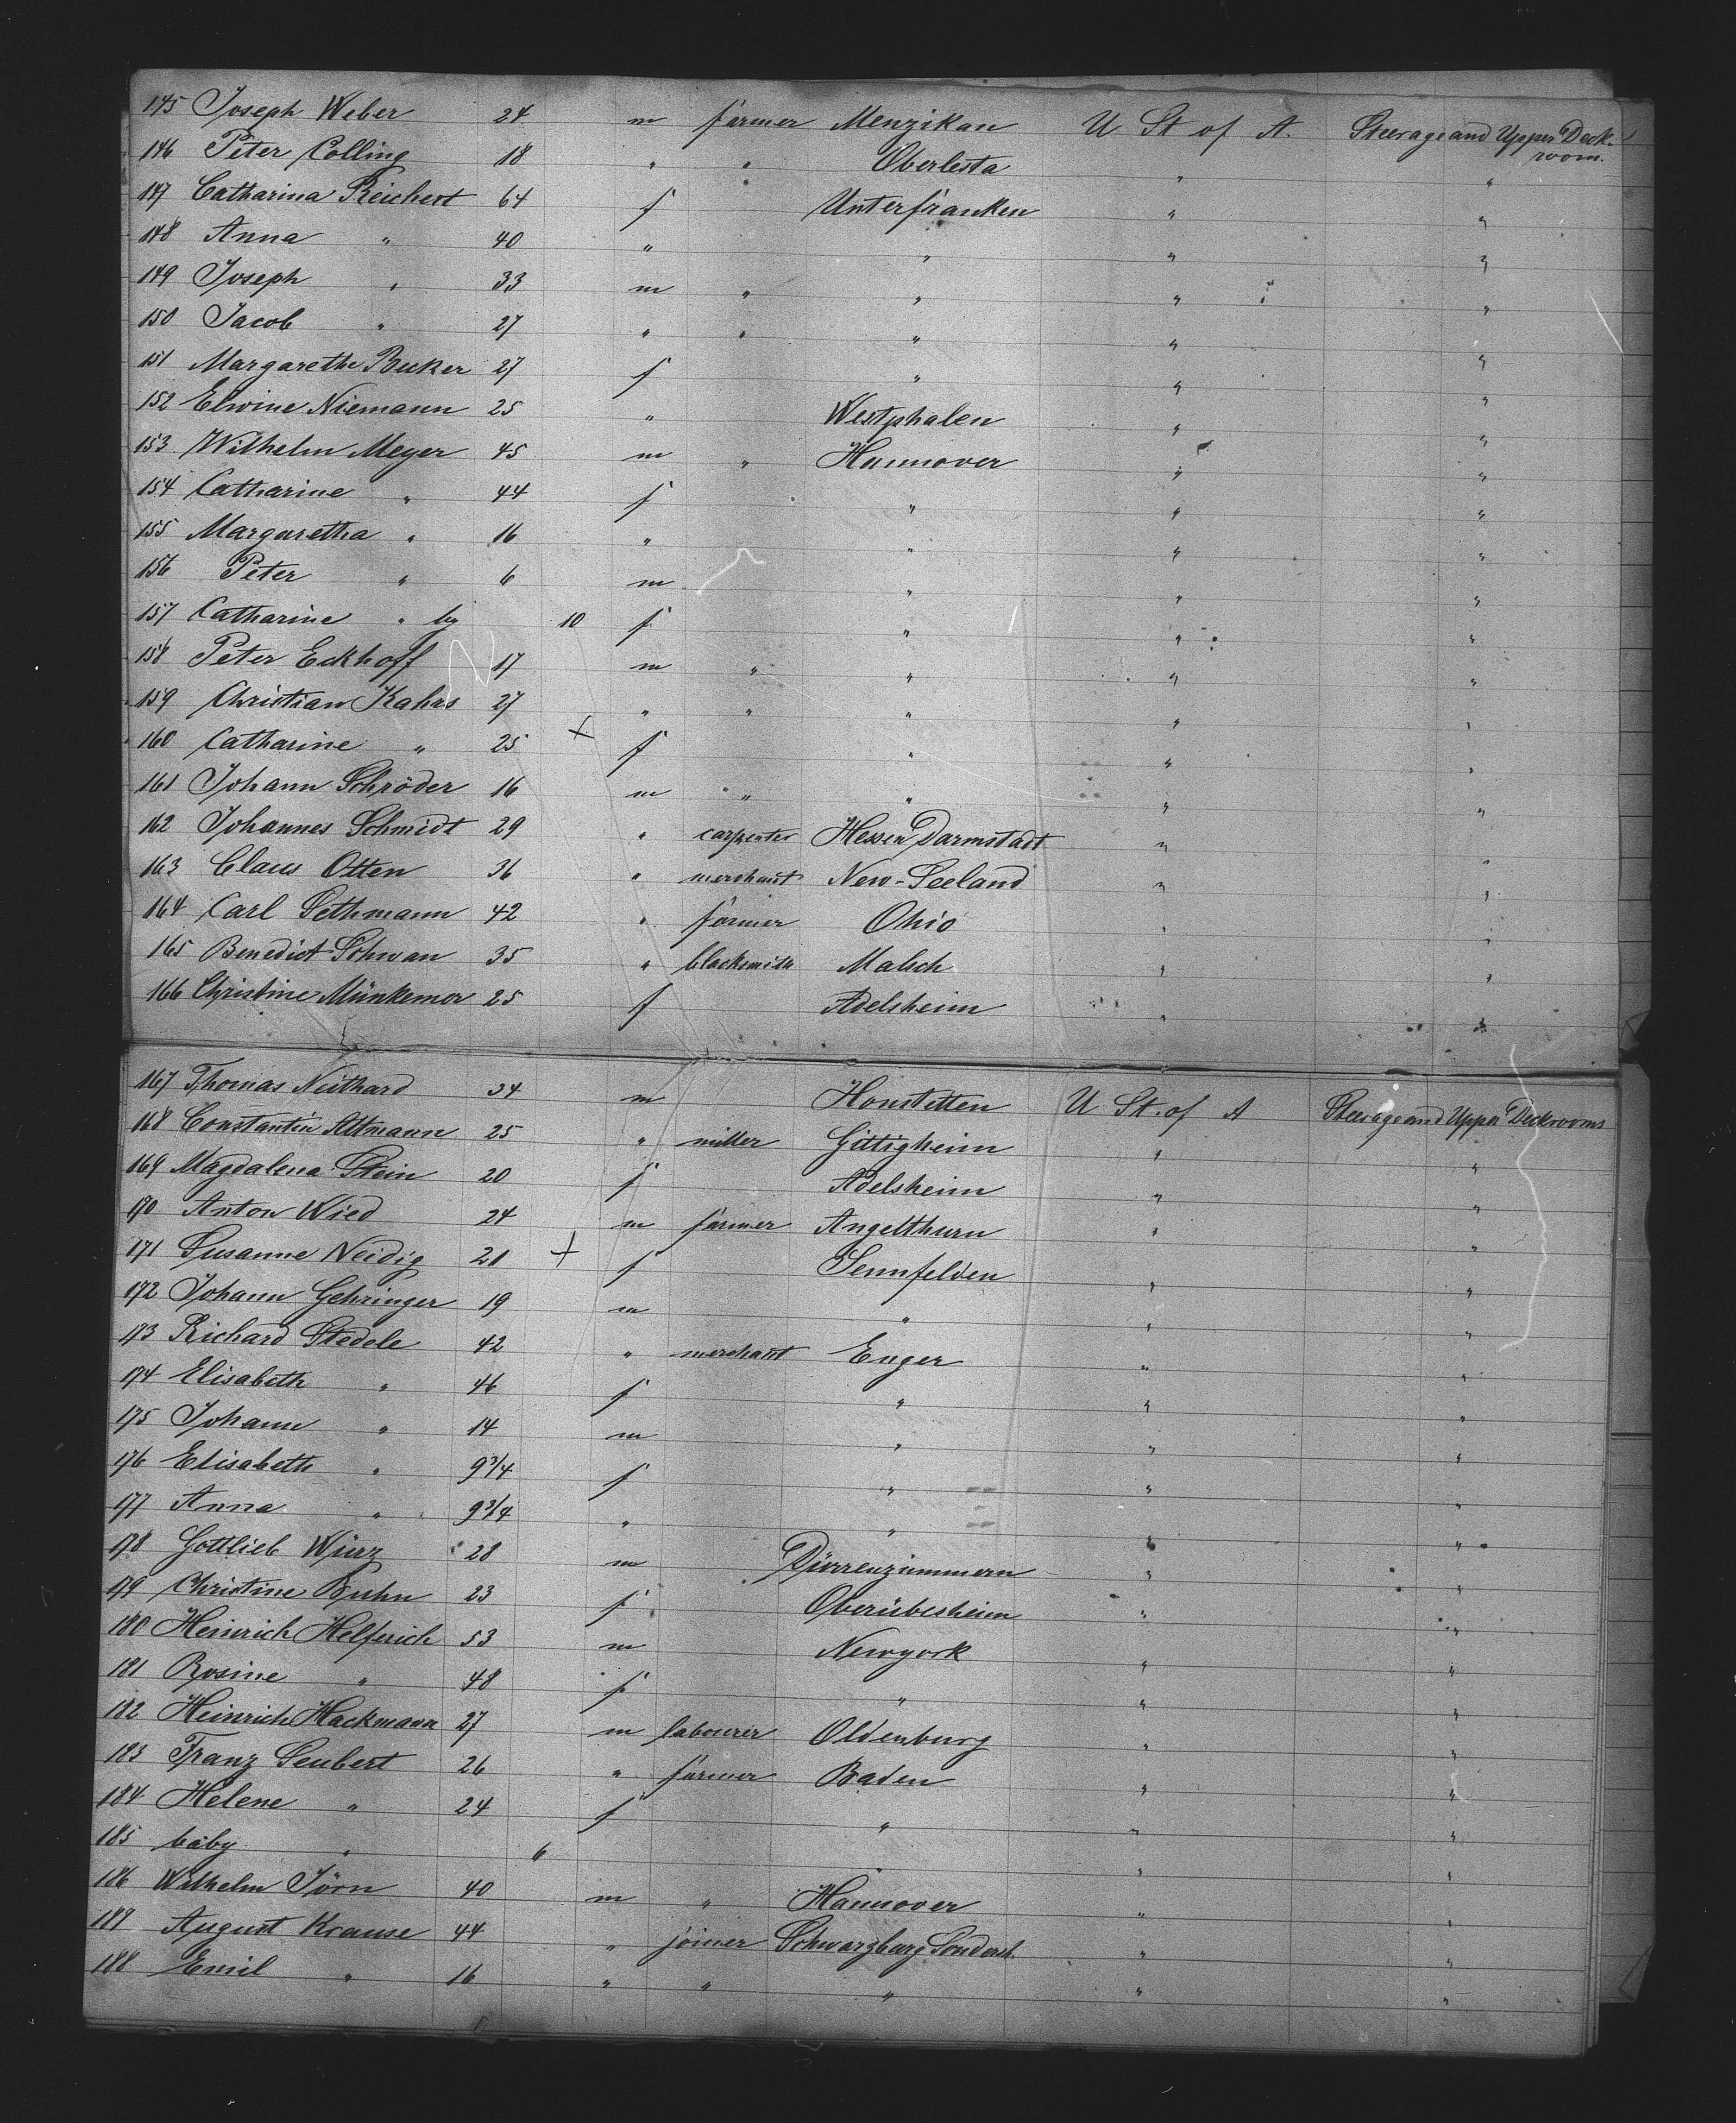 145 Joseph Weber 24 m farmer Menzikan U St of A. Steerage and Upper Deck-
room.
146 Peter Colling 18 " " Oberlesta " "
147 Catharina Reichert 64 f Unterfranken " "
148 Anna " 40 " " " "
149 Joseph " 33 m " " " "
150 Jacob " 27 " " " " "
151 Margarethe Becker 27 f " " "
152 Elwine Niemann 25 " Westphalen " "
153. Wilhelm Meyer 45 m " Hannover " "
154 Catharine " 44 f " " "
155 Margaretha " 16 " " " "
156 Peter " 6 m " " "
157 Catharine " by 10 f " " "
158 Peter Eckhoff 17 m " " " "
159 Christian Kahrs 27 " " " " "
160 Catharine " 25 + f " " "
161 Johann Schröder 16 m " " " "
162 Johannes Schmidt 29 " carpenter Hessen Darmstadt " "
163 Claus Otten 36 " merchant New-Seeland " "
164 Carl Sethmann 42 " farmer Ohio " "
165 Benedict Schwan 35 " blacksmith Malsch " "
166 Christine Münkemor 25 f Adelsheim " "
167 Thomas Neithard 34 m Honstetten U St. of A Steerage and Upper Deckrooms
168 Constantin Altmann 25 " miller Gittigheim " "
169 Magdalena Stein 20 f Adelsheim " "
170 Anton Wied 24 m farmer Angelthurn " "
171 Susanne Neidig 21 + f Sennfelden " "
172 Johann Gehringer 19 m " " "
173 Richard Stedele 42 " merchant Enger " "
174 Elisabeth " 46 f " " "
175 Johann " 14 m " " "
176 Elisabeth " 9 3/4 f " " "
177 Anna " 9 3/4 " " " "
178 Gottlieb Würz 28 m Dürrenzimmern " "
179 Christine Buhn 23 f Oberübesheim " "
180 Heinrich Helferich 53 m Newyork " "
181 Rosine " 48 f " " "
182 Heinrich Hackmann 27 m labourer Oldenburg " "
183 Franz Seubert 26 " farmer Baden " "
184 Helene " 24 f " " "
185 baby " 6 " "
186 Wilhelm Jörn 40 m " Hannover " "
187 August Krause 44 " joiner Schwarzburg Sondersh. " "
188 Emil " 16 " " " " "